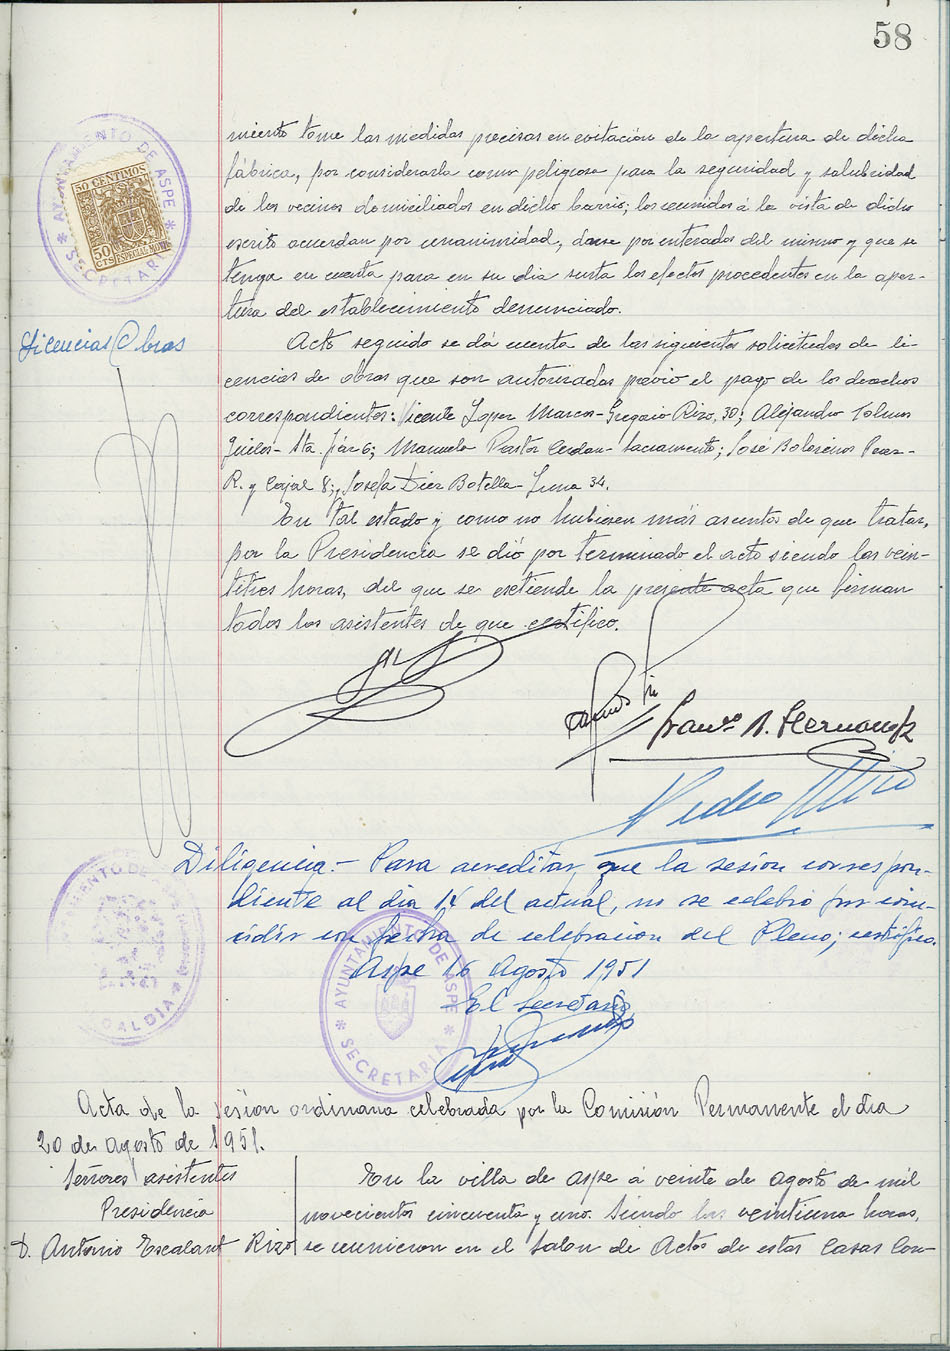 58
miento tome las medidas precisas en evitación de la apertura de dicha
fábrica, por considerarla como peligrosa para la seguridad y salubridad
de los vecinos domiciliados en dicho barrio; los reunidos á la vista de dicho
escrito acuerdan por unanimidad, darse por enterados del mismo y que se
tenga en cuenta para en su dia surta los efectos procedentes en la aper-
tura del establecimiento denunciado.
AYUNTAMIENTO DE ASPE
SECRETARIA
50 CENTIMOS
50 CTS ESPECIAL MOVIL
Licencias Obras
Acto seguido se dá cuenta de las siguientes solicitudes de li-
cencias de obras que son autorizadas previo el pago de los derechos
correspondientes: Vicente Lopez Marcos- Gregorio Rizo, 30; Alejandro
- Sta. Faz 6; Manuela Pastor Cerdan- Sacramento; José Perez-
R. y Cajal 8; y Josefa Diez Botella- Luna 34.
En tal estado y como no hubiesen más asuntos de que tratar,
por la Presidencia se dió por terminado el acto siendo las vein-
titres horas, del que se extiende la presente acta que firman
todos los asistentes de que certifico.
Franco. B. Hernandez
Pedro
Diligencia.- Para acreditar, que la sesion correspon-
diente al dia 14 del actual, no se celebró por coin-
cidir con fecha de celebracion del Pleno; certifico.
Aspe 16 Agosto 1951
El Secretario,
AYUNTAMIENTO DE ASPE
ALCALDIA
AYUNTAMIENTO DE ASPE
SECRETARIA
Acta de la sesion ordinaria celebrada por la Comisión Permanente el dia
20 de agosto de 1951.
Señores asistentes
Presidencia
D. Antonio Escalant Rizo
En la villa de Aspe á veinte de agosto de mil
novecientos cincuenta y uno. Siendo las veintiuna horas,
se reunieron en el Salon de Actos de estas Casas Con-